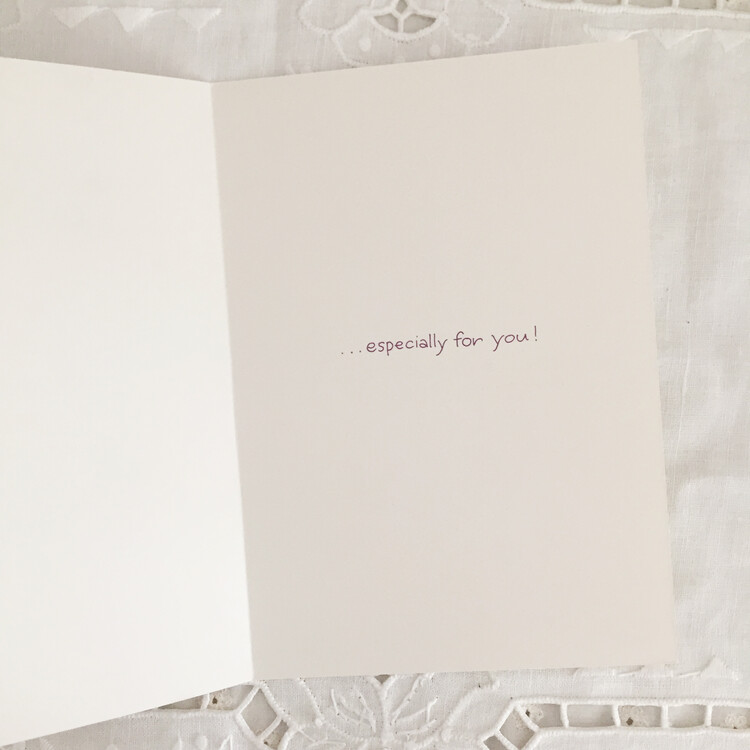 ...especially for you!